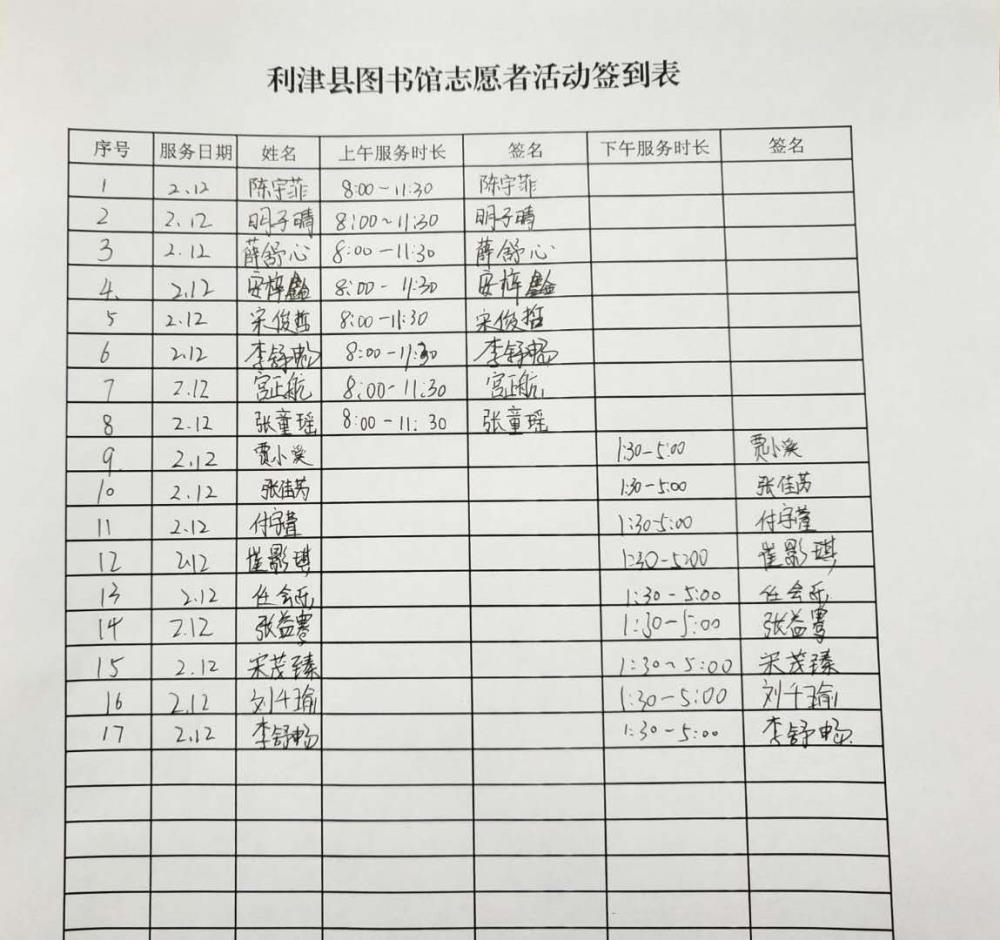 利津县图书馆志愿者活动签到表
序号 服务日期 姓名 上午服务时长 签名 下午服务时长 签名
1 2.12 陈宇菲 8:00-11:30 陈宇菲
2 2.12 明子晴 8:00~11:30 明子晴
3 2.12 薛舒心 8:00-11:30 薛舒心
4. 2.12 8:00-11:30
5 2.12 宋俊哲 8:00-11:30 宋俊哲
6 2.12 李舒畅 8:00-11:30 李舒畅
7 2.12 宫正航 8:00-11:30 宫正航
8 2.12 张童瑶 8:00-11:30 张童瑶
9 2.12 贾小溪 1:30-5:00 贾小溪
10 2.12 张佳芮 1:30-5:00 张佳芮
11 2.12 1:30-5:00
12 2.12 崔影琪 1:30-5:00 崔影琪
13 2.12 1:30-5:00
14 2.12 1:30-5:00
15 2.12 宋茂臻 1:30~5:00 宋茂臻
16 2.12 刘千瑜 1:30-5:00 刘千瑜
17 2.12 李舒畅 1:30-5:00 李舒畅